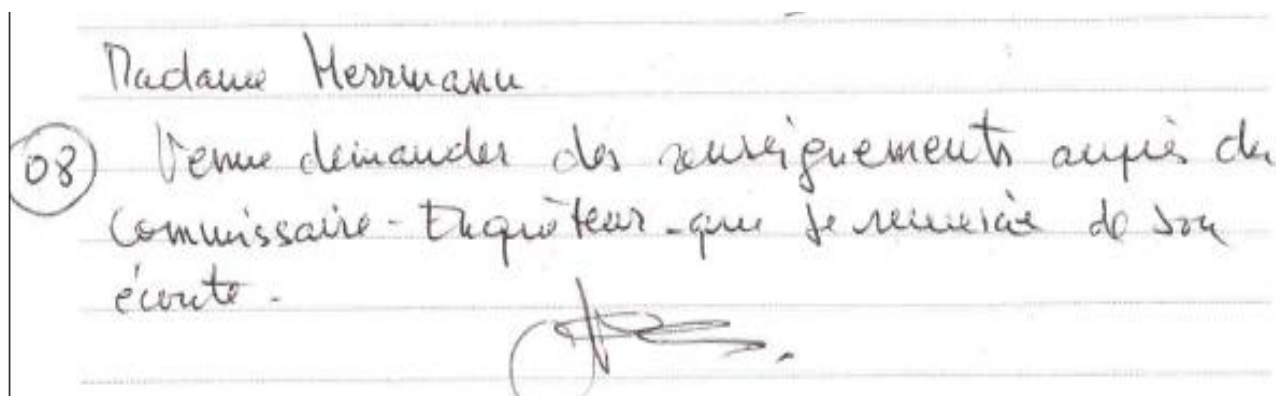 Madame Herrmann
08 Venue demander des renseignements auprès du
Commissaire-Enquêteur que je remercie de son
écoute.